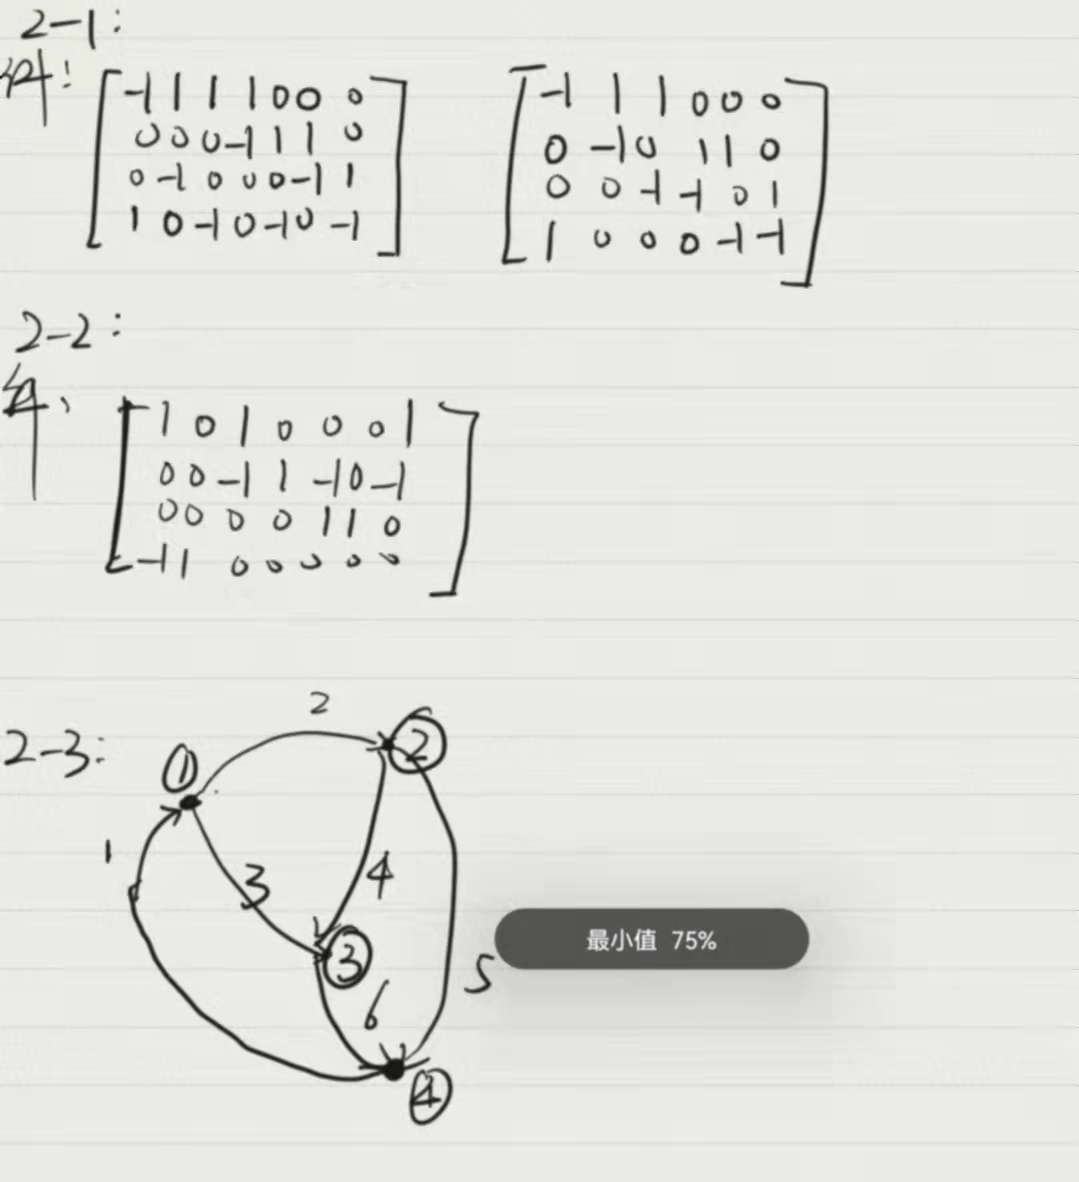 2-1:
解: -1 1 1 1 0 0 0    -1 1 1 0 0 0
0 0 0 -1 1 1 0    0 -1 0 1 1 0
0 -1 0 0 0 -1 1    0 0 -1 -1 0 1
1 0 -1 0 -1 0 -1    1 0 0 0 -1 -1
2-2:
解、 1 0 1 0 0 0 1
0 0 -1 1 -1 0 -1
0 0 0 0 1 1 0
-1 1 0 0 0 0 0
2
2-3: ① ②
1 3 4
③ 最小值 75%
6 5
④